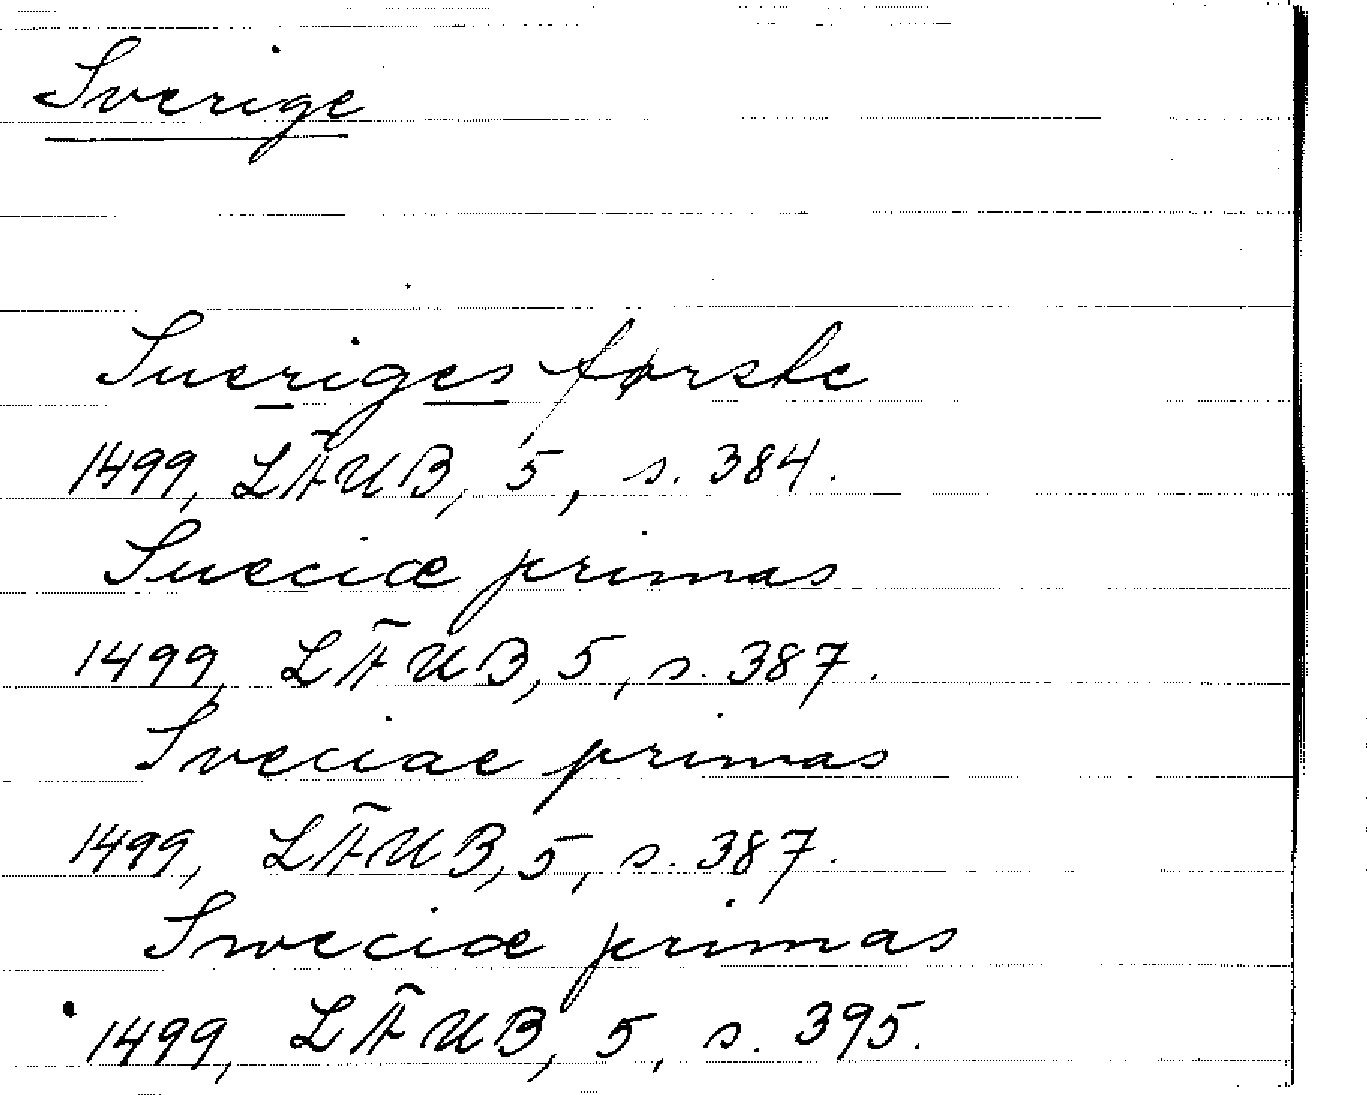 Sverige
Sueriges første
1499, LÆUB, 5, s. 384.
Sueciæ primas
1499, LÆUB, 5, s. 387.
Sveciae primas
1499, LÆUB, 5, s. 387.
Sweciæ primas
1499, LÆUB, 5, s. 395.